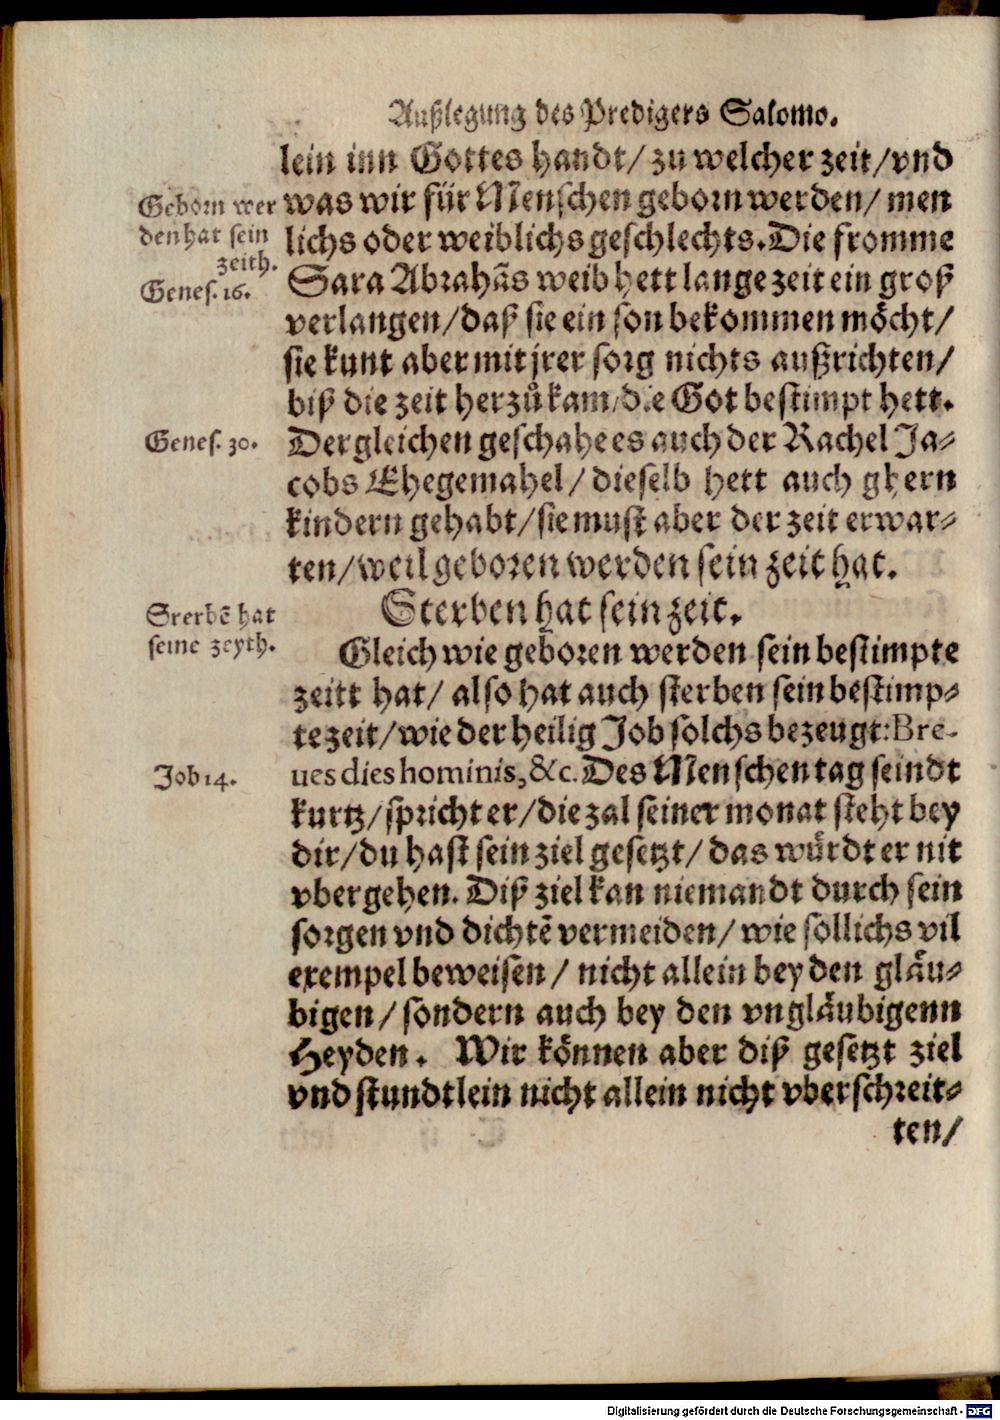 Außlegung des Predigers Salomo.
lein inn Gottes handt/ zu welcher zeit/vnd
was wir für Menschen geborn werden/ men
lichs oder weiblichs geschlechts. Die fromme
Sara Abrahãs weib hett lange zeit ein groß
verlangen/daß sie ein son bekommen möcht/
sie kunt aber mit jrer sorg nichts außrichten/
biß die zeit herzů kam/die Got bestimpt hett.
Dergleichen geschahe es auch der Rachel Ja-
cobs Ehegemahel/ dieselb hett auch ghern
kindern gehabt/sie must aber der zeit erwar-
ten/weil geboren werden sein zeit hat.
Sterben hat sein zeit.
Gleich wie geboren werden sein bestimpte
zeitt hat/ also hat auch sterben sein bestimp-
te zeit/wie der heilig Job solchs bezeugt: Bre-
ues dies hominis, &c. Des Menschen tag seindt
kurtz/spricht er/die zal seiner monat steht bey
dir/du hast sein ziel gesetzt/ das würdt er nit
vbergehen. Diß ziel kan niemandt durch sein
sorgen vnd dichtẽ vermeiden/ wie sollichs vil
exempel beweisen/ nicht allein bey den gläu-
bigen/ sondern auch bey den vngläubigenn
Heyden. Wir können aber diß gesetzt ziel
vnd stundtlein nicht allein nicht vberschreit-
ten/
Geborn wer
den hat sein
zeith.
Genes. 16.
Genes. 30.
Srerbẽ hat
seine zeyth.
Job 14.
Digitalisierung gefördert durch die Deutsche Forschungsgemeinschaft - DFG